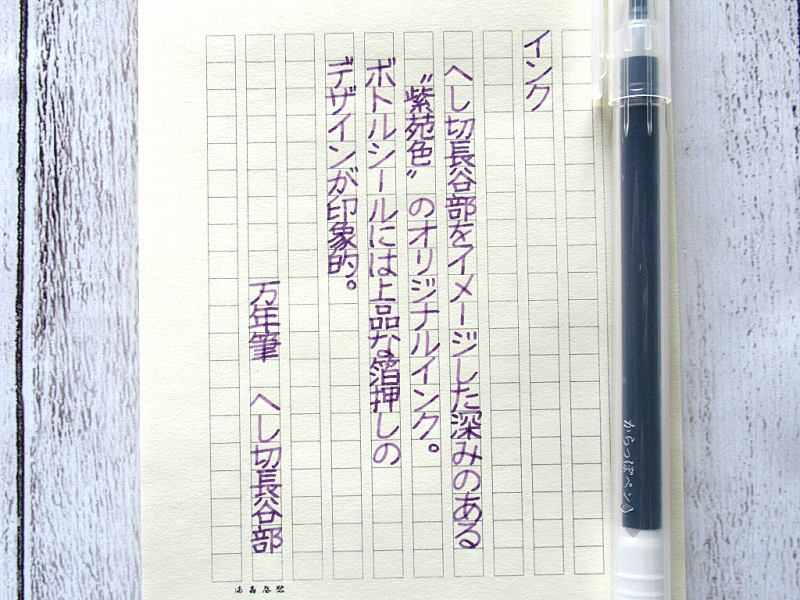 インク
へし切長谷部をイメージした深みのある
“紫苑色”のオリジナルインク。
ボトルシールには上品な箔押しの
デザインが印象的。
万年筆　へし切長谷部
からっぽペン